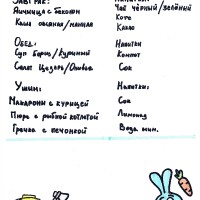 ЗАВТРАК:
Яичница с беконом
Каша овсяная/манная
Чай чёрный/зелёный
Кофе
Какао
Обед:
Суп Борщ/Куриный
Салат Цезарь/Оливье
Напитки
Компот
Сок
Ужин:
Макарони с курицей
Пюре с рибной котлетой
Гречка с печонкой
Напитки:
Сок
Лимонад
Вода мин.